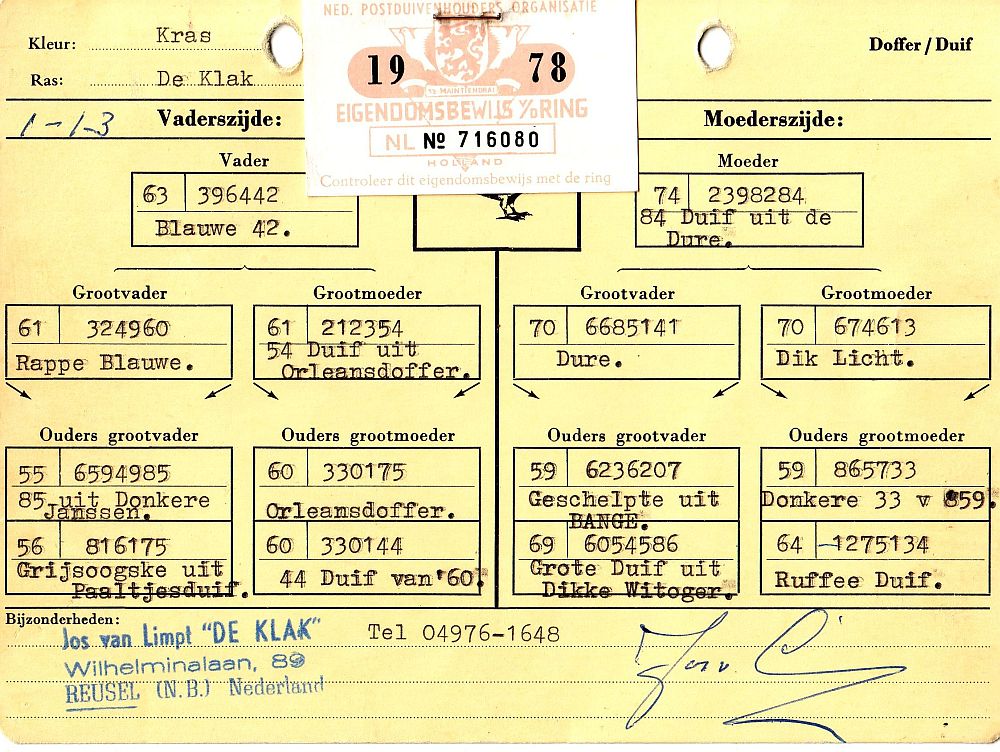 NED. POSTDUIVENHOUDERS ORGANISATIE
19 78
'K MAINTIENDRAI
EIGENDOMSBEWIJS V/D RING
NL № 716080
HOLLAND
Controleer dit eigendomsbewijs met de ring
Kleur: Kras
Doffer / Duif
Ras: De Klak
1-13 Vaderszijde:
Moederszijde:
Vader
63 396442
Blauwe 42.
Moeder
74 2398284
84 Duif uit de
Dure.
Grootvader
61 324960
Rappe Blauwe.
Grootmoeder
61 212354
54 Duif uit
Orleansdoffer.
Grootvader
70 6685141
Dure.
Grootmoeder
70 674613
Dik Licht.
Ouders grootvader
55 6594985
85 uit Donkere
Janssen.
56 816175
Grijsoogske uit
Paaltjesduif.
Ouders grootmoeder
60 330175
Orleansdoffer.
60 330144
44 Duif van '60.
Ouders grootvader
59 6236207
Geschelpte uit
BANGE.
69 6054586
Grote Duif uit
Dikke Witoger.
Ouders grootmoeder
59 865733
Donkere 33 v 859.
64 -1275134
Ruffee Duif.
Bijzonderheden:
Jos van Limpt "DE KLAK"
Tel 04976-1648
Wilhelminalaan, 89
REUSEL (N.B.) Nederland